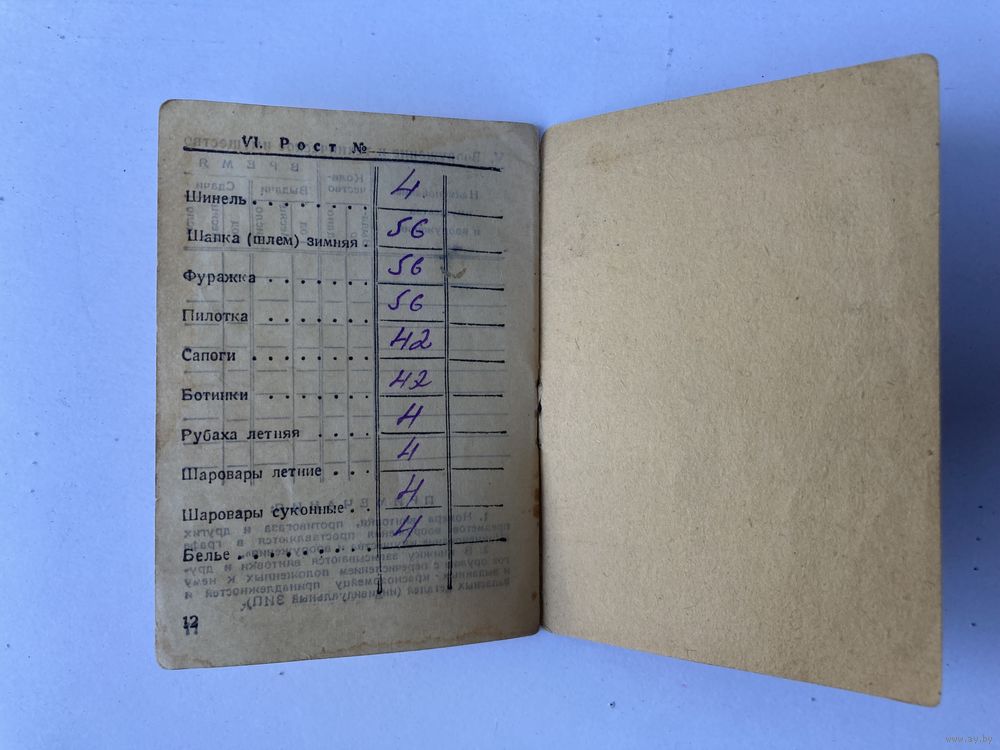 VI. Рост №
Шинель . . . . . . . 4
Шапка (шлем) зимняя . 56
Фуражка . . . . . . 56
Пилотка . . . . . . 56
Сапоги . . . . . . . 42
Ботинки . . . . . . 42
Рубаха летняя . . . . 4
Шаровары летние . . . 4
Шаровары суконные . . 4
Белье . . . . . . . . . 4
12
www.ay.by